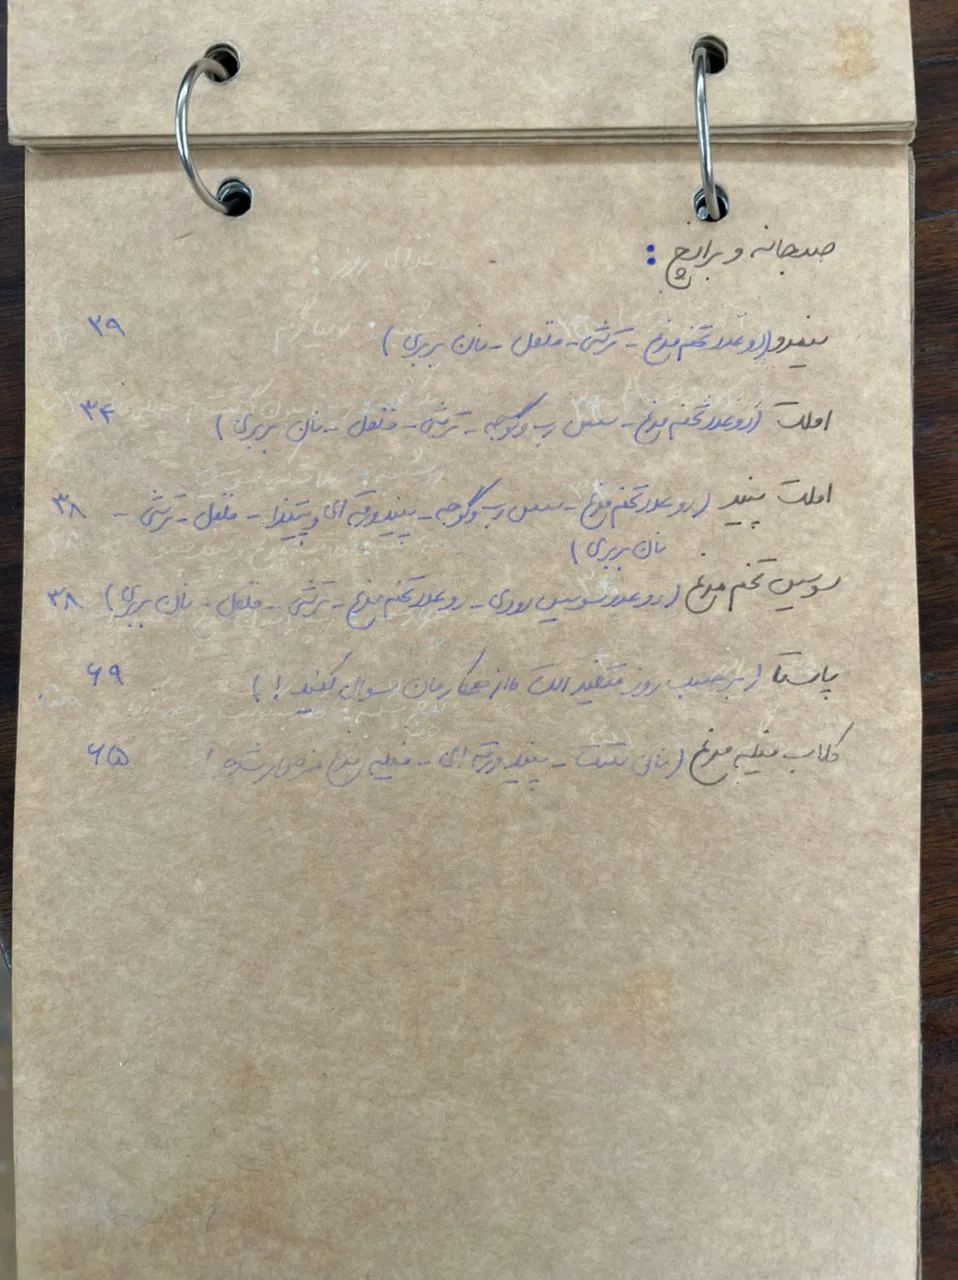 صبحانه و برانچ :
نیمرو (دو عدد تخم مرغ - ترشی - فلفل - نان بربری) ۲۹
املت (دو عدد تخم مرغ - سس رب و گوجه - ترشی - فلفل - نان بربری) ۳۴
املت پنیر (دو عدد تخم مرغ - سس رب و گوجه - پنیر ورقه ای و پیتزا - فلفل - ترشی - ۳۸
نان بربری)
سوسیس تخم مرغ (دو عدد سوسیس رودی - دو عدد تخم مرغ - ترشی - فلفل - نان بربری) ۳۸
پاستا (برحسب روز متغیر است از همکارمان سوال کنید!) ۶۹
کلاب فیله مرغ (نان تست - پنیر ورقه ای - فیله مرغ مزه دار شده) ۶۵